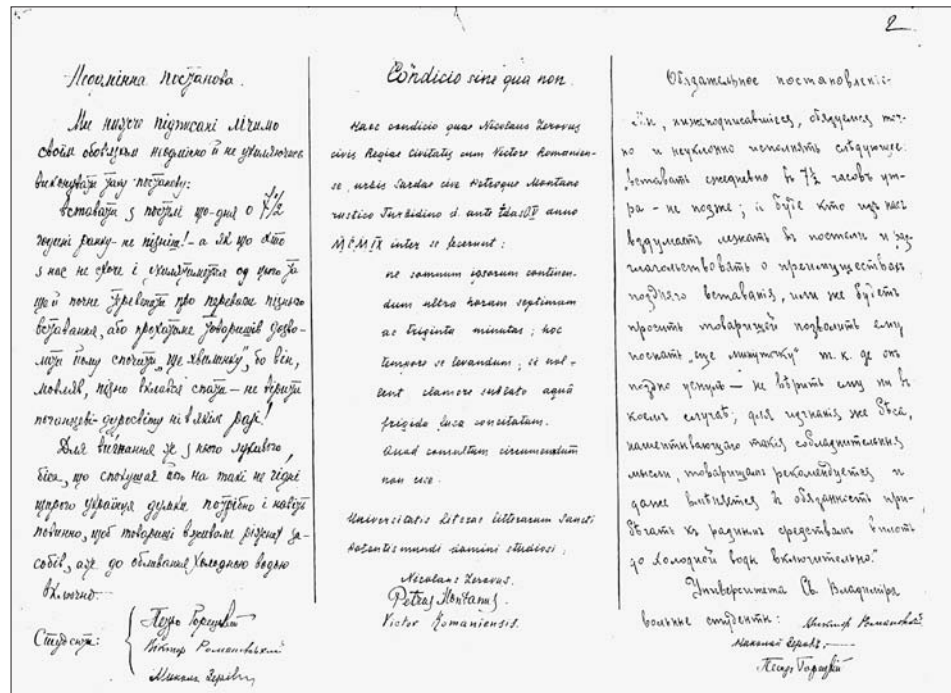 2
Неодмінна постанова.
Ми низче підписані лічимо
своїм обовязком неодмінно й не ухиляючись
виконувати таку постанову:
Вставати з постелі що-дня о 7 1/2
годині ранку - не пізніш! - а як що хто
з нас не схоче і ухилятиметця од цього та
ще й почне торочити про переваги пізнього
вставання, або прохатиме товаришів дозво-
лити йому спочити „ще хвилинку", бо він,
мовляв, пізно вклався спати - не вірити
поганцеві-дуросвіту ні в якім разі!
Для вигнання ж з нього лукавого
біса, що спокушає його на такі не гідні
щирого українця думки потрібно і навіть
повинно, щоб товариші вживали різних за-
собів, аж до обливання холодною водою
включно.
Студенти:
Петро Горецький
Віктор Романовський
Микола Зеров
Condicio sine qua non.
Haec condicio quae Nicolaus Zerovus
civis Regiae Civitatis cum Victore Romanien-
se, urbis Surdae cive Petroque Montano
rustico Turbidino d. ante Idas anno
MCMIX inter se fecerunt:
ne somnum ipsorum continen-
dum ultra horam septimam
ac triginta minutas; hoc
tempore se levandum; si nol-
lent, clamore sublato aquā
frigida concitatum.
Quod consultum circumeundum
non esse.
Universitatis litterarum Sancti
Potentis mundi domini studiosi:
Nicolaus Zerovus.
Petrus Montanus.
Victor Romaniensis.
Обязательное постановленіе.
Мы, нижеподписавшіеся, обязуемся точ-
но и неуклонно исполнять слѣдующее:
„вставать ежедневно въ 7½ часовъ ут-
ра - не позже; и буде кто изъ насъ
вздумаетъ лежать въ постели и раз-
глагольствовать о преимуществахъ
поздняго вставанія, или же будетъ
просить товарищей позволить ему
поспать „еще минуточку" т. к. де онъ
поздно уснулъ — не вѣрить ему ни в
коем случаѣ; для изгнанія же бѣса,
нашептывающаго такія соблазнительныя
мысли, товарищамъ рекомендуется и
даже вмѣняется въ обязанность при-
бѣгать къ разнымъ средствамъ вплоть
до холодной воды включительно."
Университета Св. Владиміра
вольные студенты: Викторъ Романовскій
Николай Зеровъ.
Петръ Горецкій